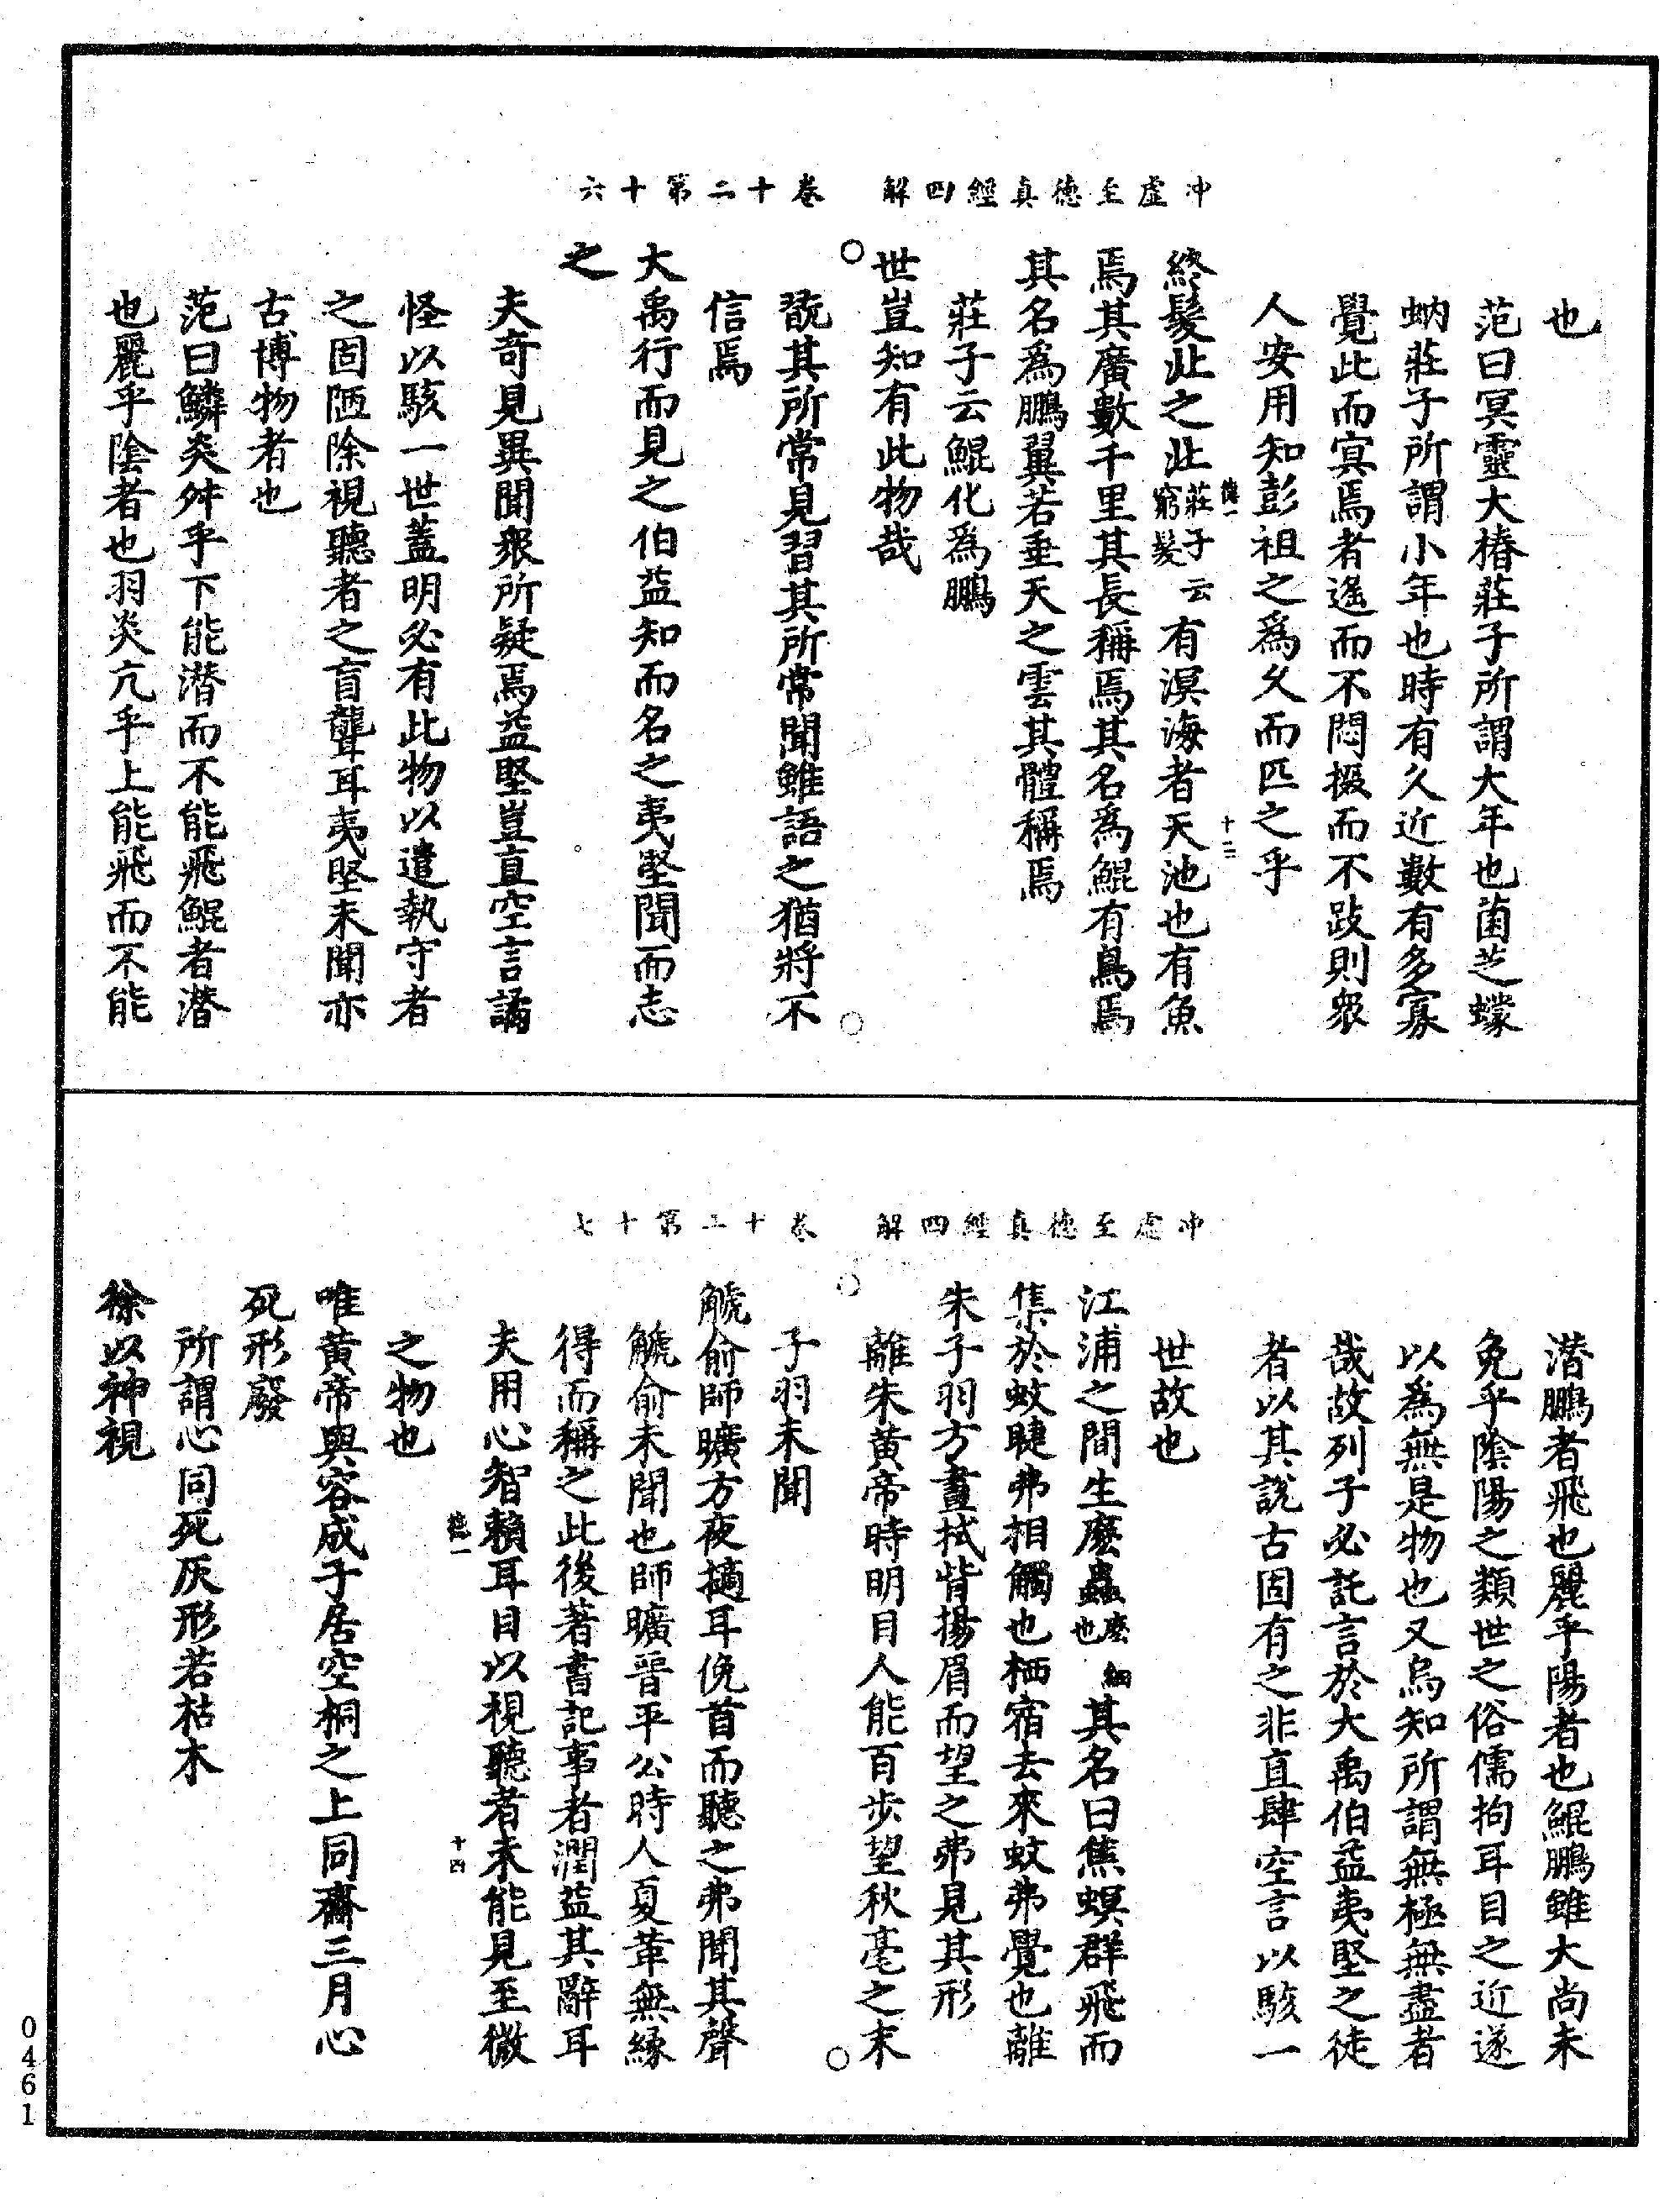 冲虛至德真經四解　卷十二第十六
也
范曰冥靈大椿莊子所謂大年也菌芝蠓
蚋莊子所謂小年也時有久近數有多寡
覺此而冥焉者遙而不悶掇而不跂則眾
人安用知彭祖之爲久而匹之乎
德一　十三
終髮北之北莊子云窮髮有溟海者天池也有魚
焉其廣數千里其長稱焉其名爲鯤有鳥焉
其名爲鵬翼若垂天之雲其體稱焉
莊子云鯤化爲鵬
世豈知有此物哉
翫其所常見習其所常聞雖語之猶將不
信焉
大禹行而見之伯益知而名之夷堅聞而志
之
夫奇見異聞眾所疑焉益堅豈直空言譎
怪以駭一世蓋明必有此物以遣執守者
之固陋除視聽者之盲聾耳夷堅未聞亦
古博物者也
范曰鱗炎舛乎下能潜而不能飛鯤者潜
也麗乎陰者也羽炎亢乎上能飛而不能
冲虛至德真經四解　卷十二第十七
潜鵬者飛也麗乎陽者也鯤鵬雖大尚未
免乎陰陽之類世之俗儒拘耳目之近遂
以為無是物也又烏知所謂無極無盡者
哉故列子必託言於大禹伯益夷堅之徒
者以其說古固有之非直肆空言以駭一
世故也
江浦之間生麽蟲麽細也其名曰焦螟群飛而
集於蚊睫弗相觸也栖宿去來蚊弗覺也離
朱子羽方晝拭眥揚眉而望之弗見其形
離朱黄帝時明目人能百步望秋毫之末
子羽未聞
䚦俞師曠方夜擿耳俛首而聽之弗聞其聲
䚦俞未聞也師曠晋平公時人夏革無緣
得而稱之此後著書記事者潤益其辭耳
夫用心智賴耳目以視聽者未能見至微
德一　十四
之物也
唯黄帝與容成子居空桐之上同齋三月心
死形廢
所謂心同死灰形若枯木
徐以神視
0461